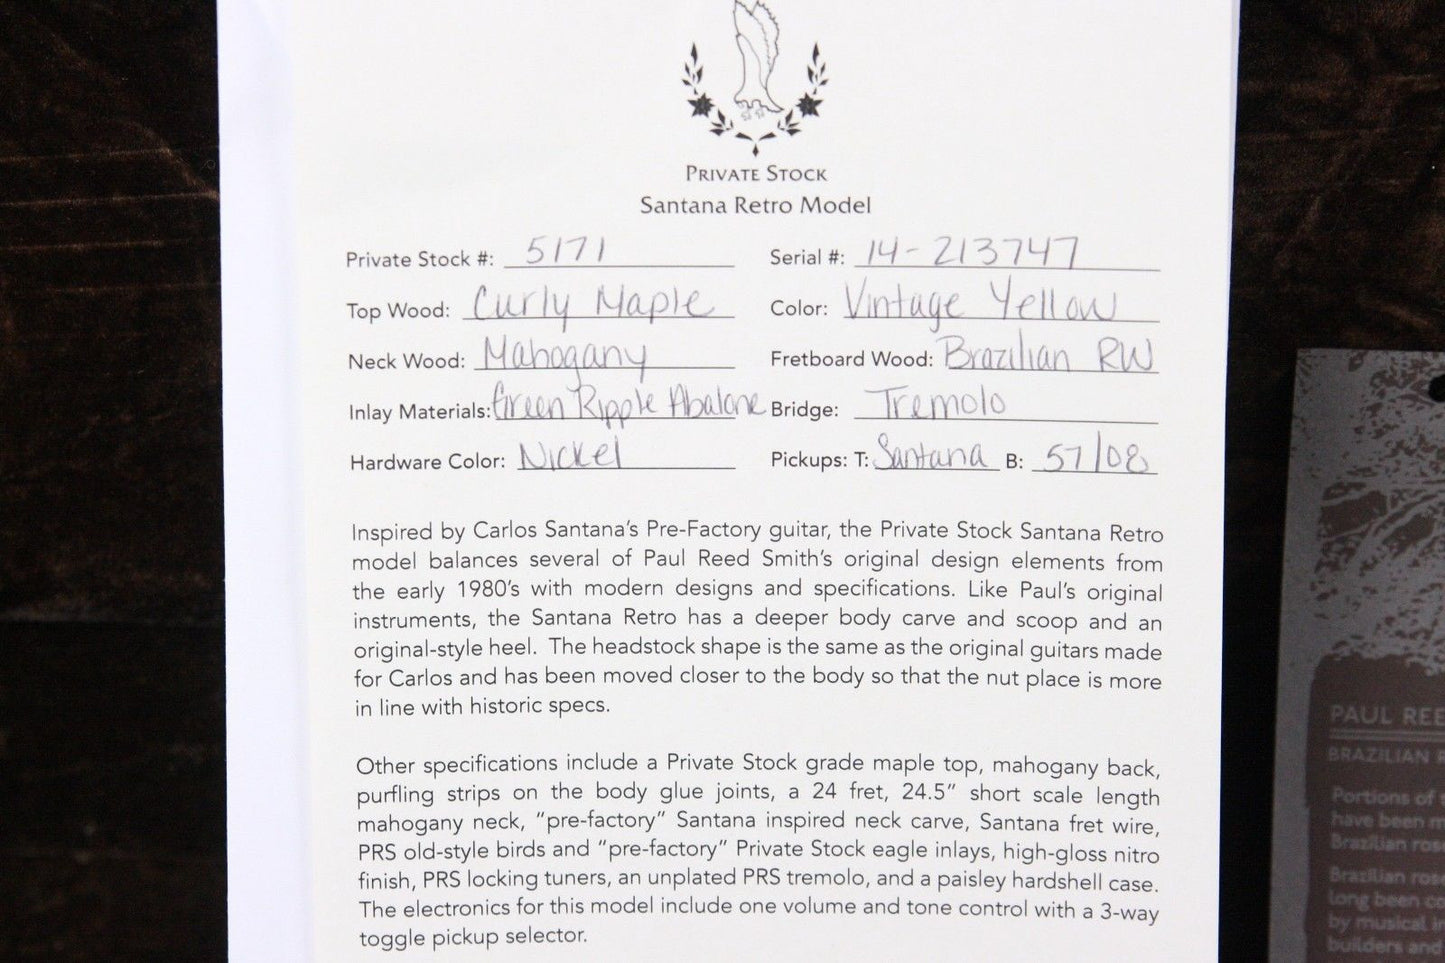 PRIVATE STOCK
Santana Retro Model
Private Stock #: 5171 Serial #: 14-213747
Top Wood: Curly Maple Color: Vintage Yellow
Neck Wood: Mahogany Fretboard Wood: Brazilian RW
Inlay Materials: Green Ripple Abalone Bridge: Tremolo
Hardware Color: Nickel Pickups: T: Santana B: 57/08
Inspired by Carlos Santana's Pre-Factory guitar, the Private Stock Santana Retro
model balances several of Paul Reed Smith's original design elements from
the early 1980's with modern designs and specifications. Like Paul's original
instruments, the Santana Retro has a deeper body carve and scoop and an
original-style heel. The headstock shape is the same as the original guitars made
for Carlos and has been moved closer to the body so that the nut place is more
in line with historic specs.
Other specifications include a Private Stock grade maple top, mahogany back,
purfling strips on the body glue joints, a 24 fret, 24.5" short scale length
mahogany neck, "pre-factory" Santana inspired neck carve, Santana fret wire,
PRS old-style birds and "pre-factory" Private Stock eagle inlays, high-gloss nitro
finish, PRS locking tuners, an unplated PRS tremolo, and a paisley hardshell case.
The electronics for this model include one volume and tone control with a 3-way
toggle pickup selector.
PAUL REE
BRAZILIAN R
Portions of
have been m
Brazilian rose
Brazilian rose
long been co
by musical in
builders and